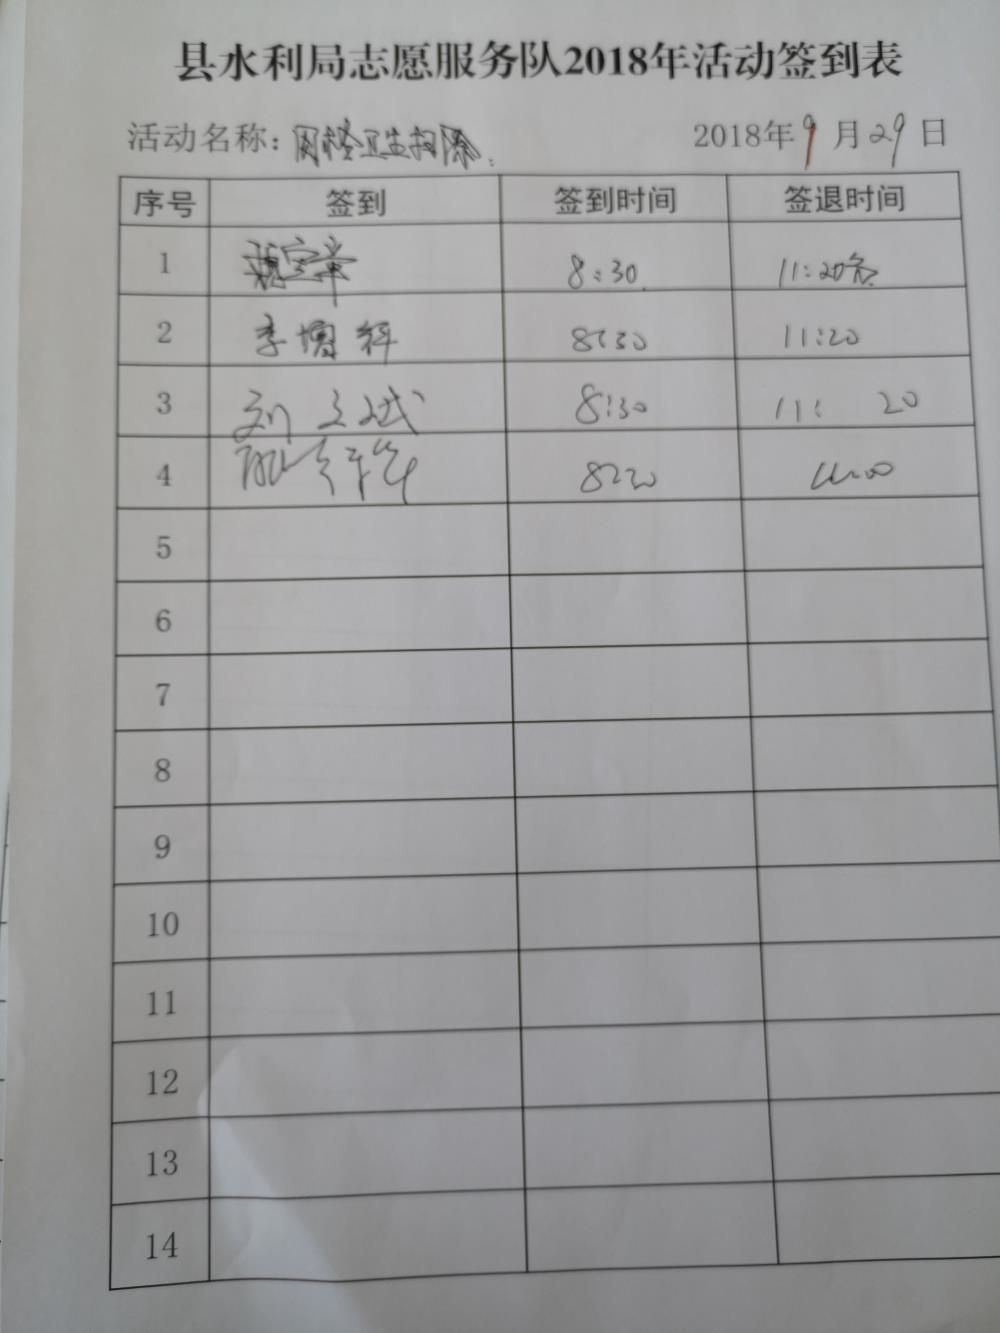 县水利局志愿服务队2018年活动签到表
活动名称：网格卫生扫除. 2018年9月29日
序号 签到 签到时间 签退时间
1 魏宝章 8:30 11:20
2 李增科 8:30 11:20
3 刘文斌 8:30 11: 20
4 8:30
5
6
7
8
9
10
11
12
13
14